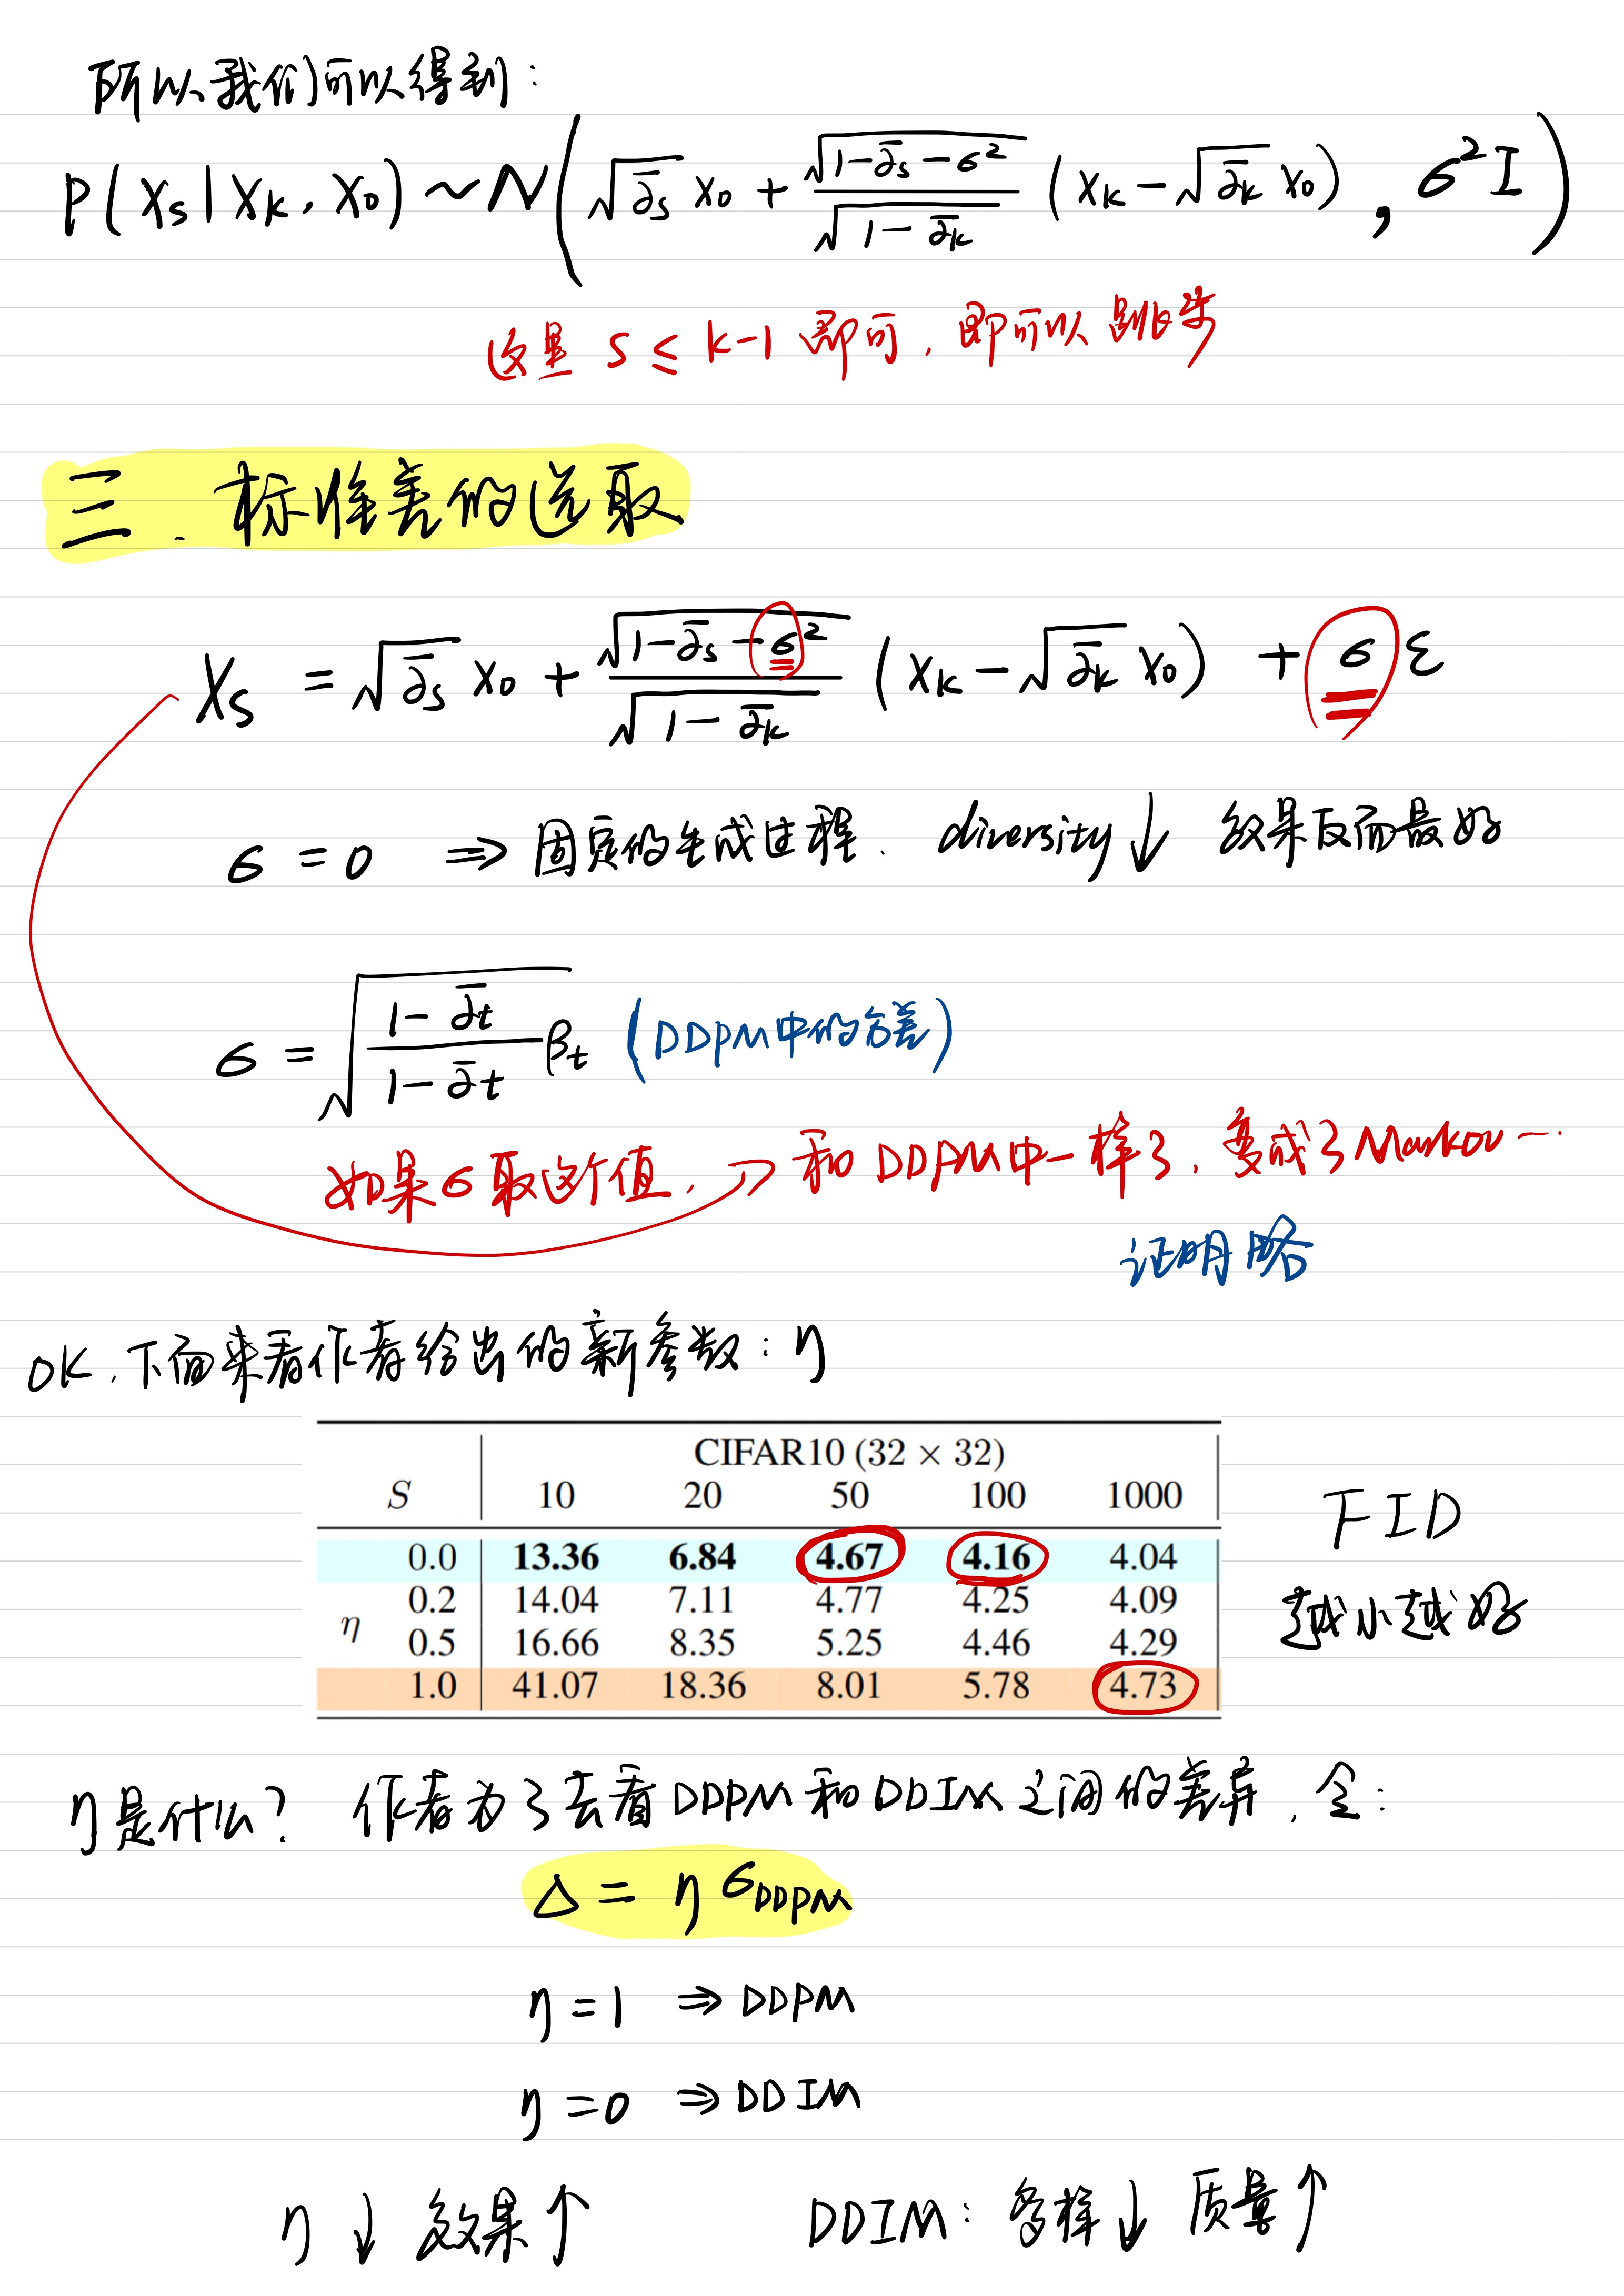 所以我们可以得到:
P(Xs|Xk, X0) ~ N(√ᾱs X0 + √(1-ᾱs-σ²)/√(1-ᾱk) (Xk-√ᾱk X0), σ²I)
这里 S ≤ k-1 即可, 即可以跳步
三、标准差的选取
Xs = √ᾱs X0 + √(1-ᾱs-σ²)/√(1-ᾱk) (Xk-√ᾱk X0) + σε
σ = 0 ⇒ 固定的生成过程、diversity↓ 效果反而最好
σ = √((1-ᾱt)/(1-ᾱt) βt) (DDPM中的方差)
如果σ取这个值, → 和DDPM中一样了, 变成了Markov…
证明略
OK, 下面来看作者给出的新参数: η
CIFAR10 (32 × 32)
S 10 20 50 100 1000
0.0 13.36 6.84 4.67 4.16 4.04
0.2 14.04 7.11 4.77 4.25 4.09
η
0.5 16.66 8.35 5.25 4.46 4.29
1.0 41.07 18.36 8.01 5.78 4.73
FID
越小越好
η是什么? 作者为了去看DDPM和DDIM之间的差异, 令:
Δ = η σDDPM
η = 1 ⇒ DDPM
η = 0 ⇒ DDIM
η ↓ 效果↑ DDIM: 多样↓ 质量↑